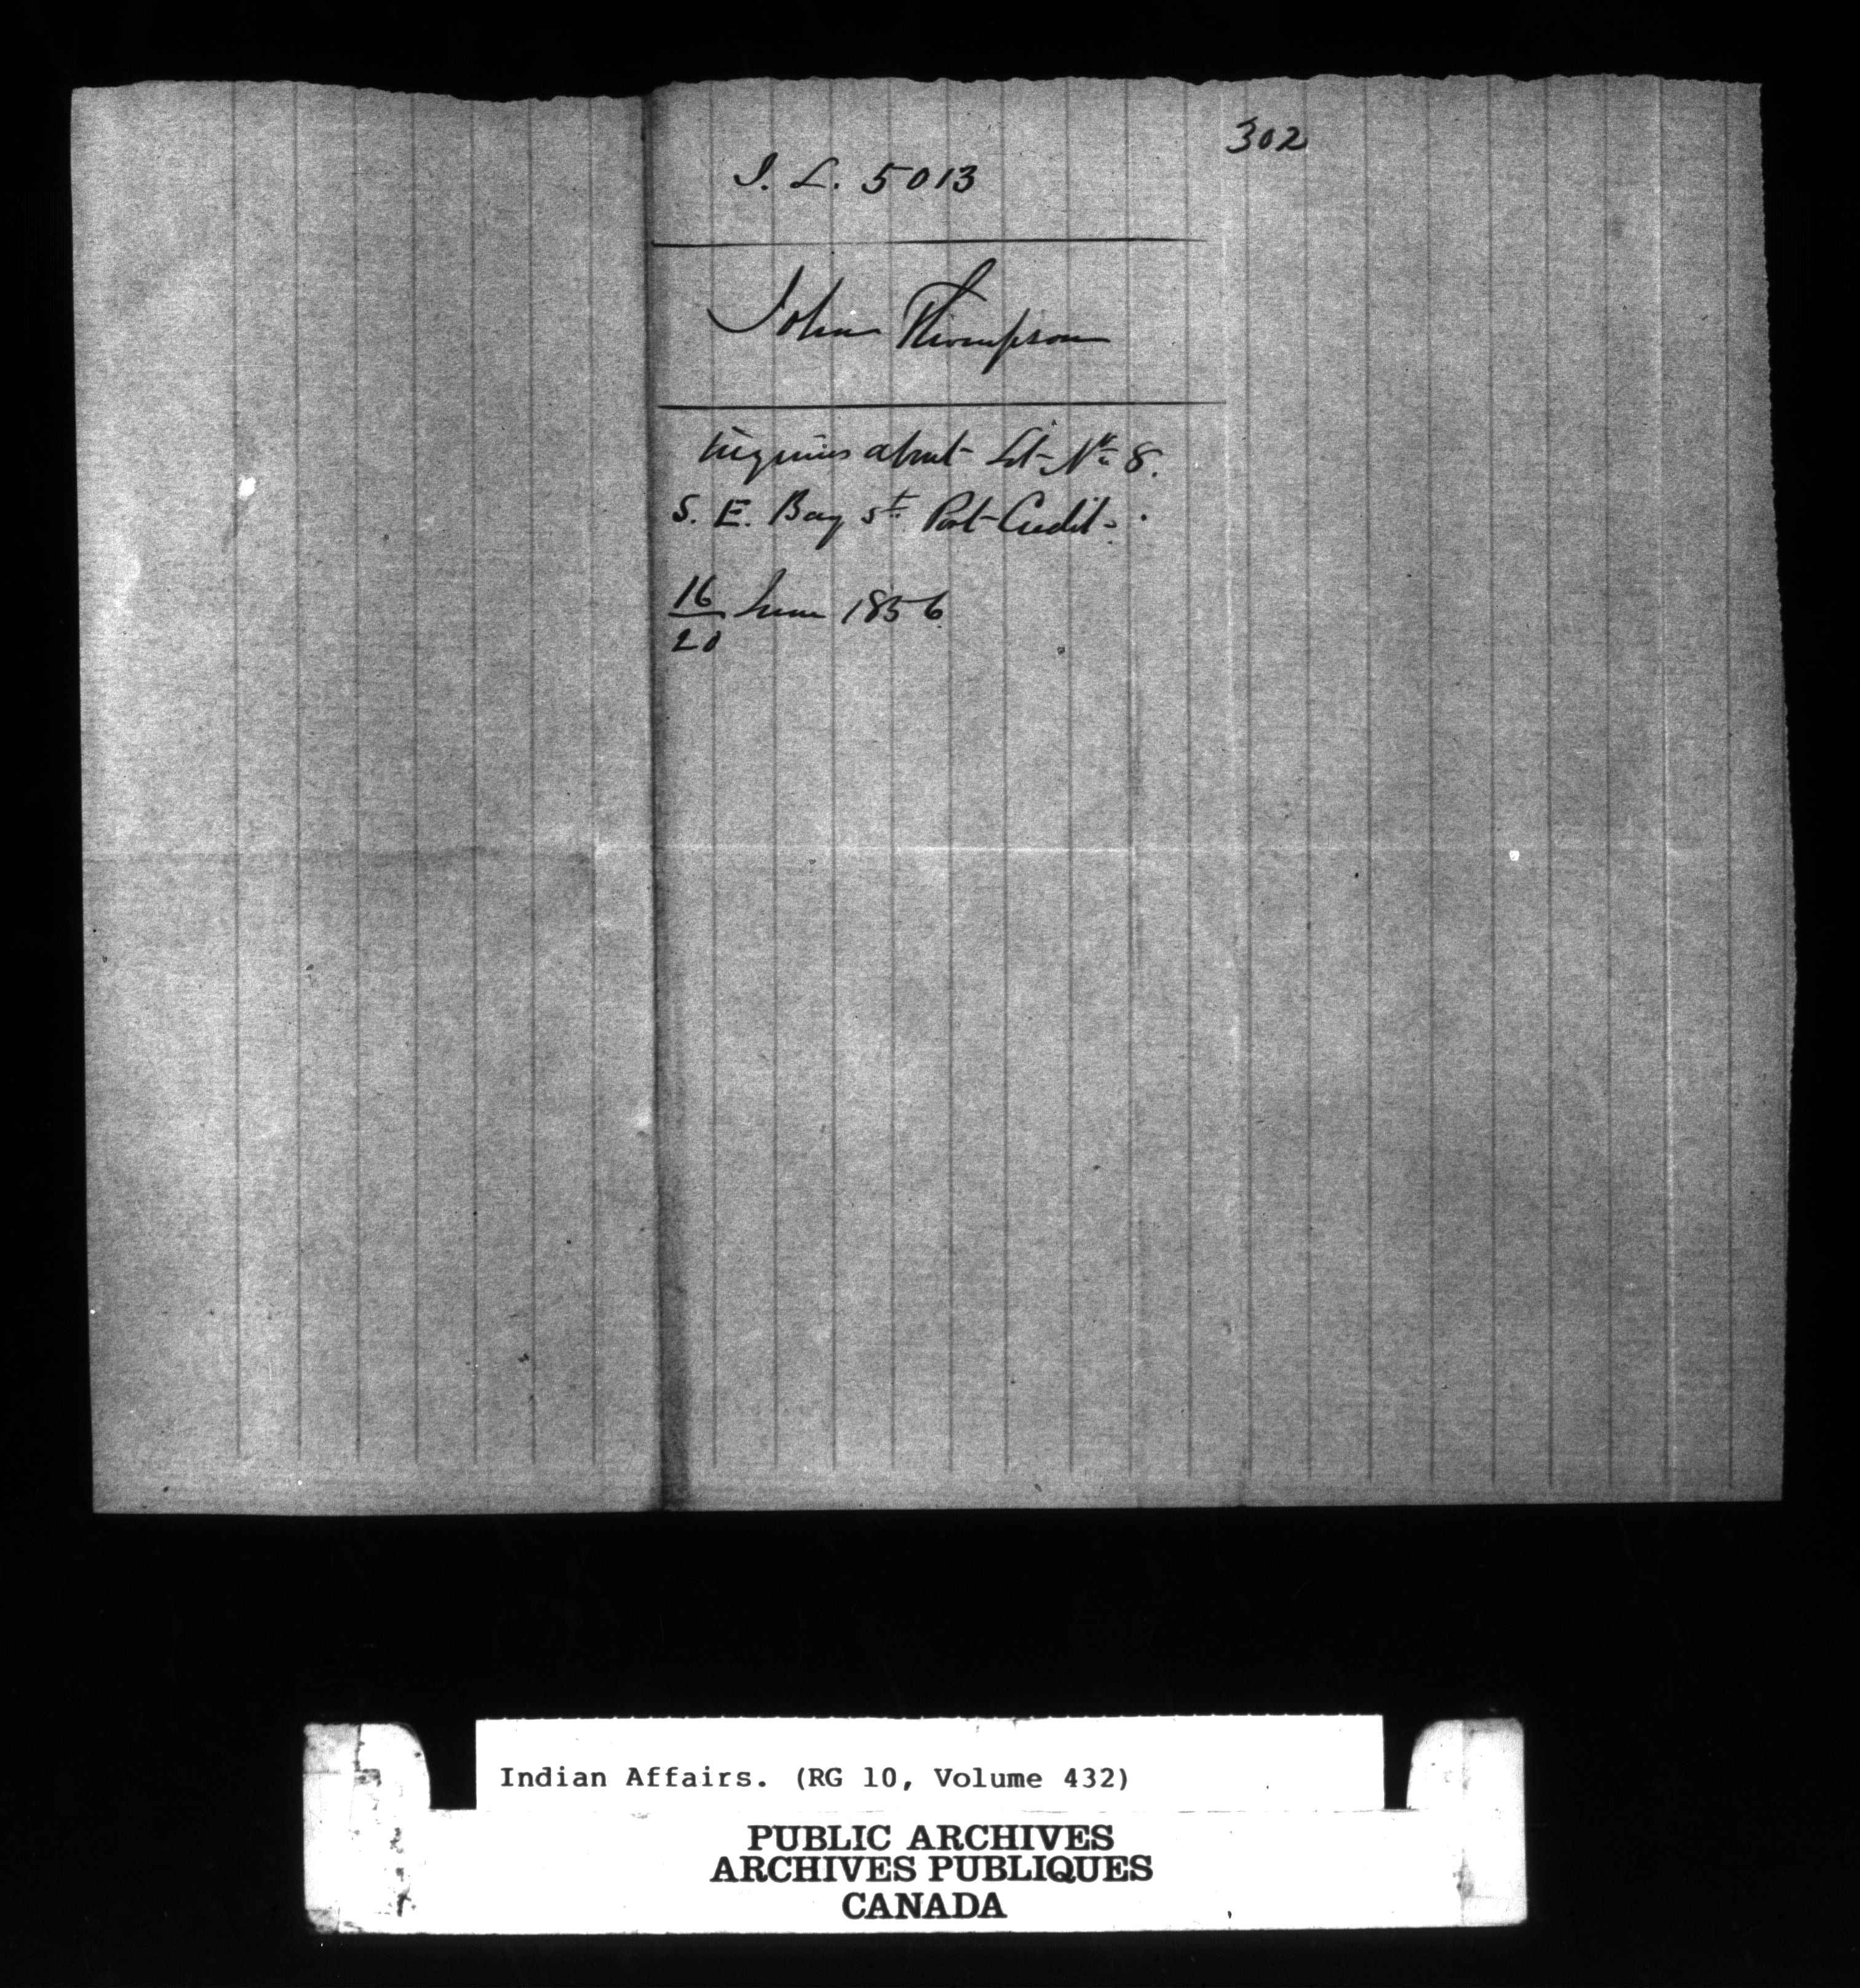 302
I. L. 5013
John Thompson
inquires about Lot No 8.
S. E. Bay St. Port Credit.
16/20 June 1856
Indian Affairs. (RG 10, Volume 432)
PUBLIC ARCHIVES
ARCHIVES PUBLIQUES
CANADA